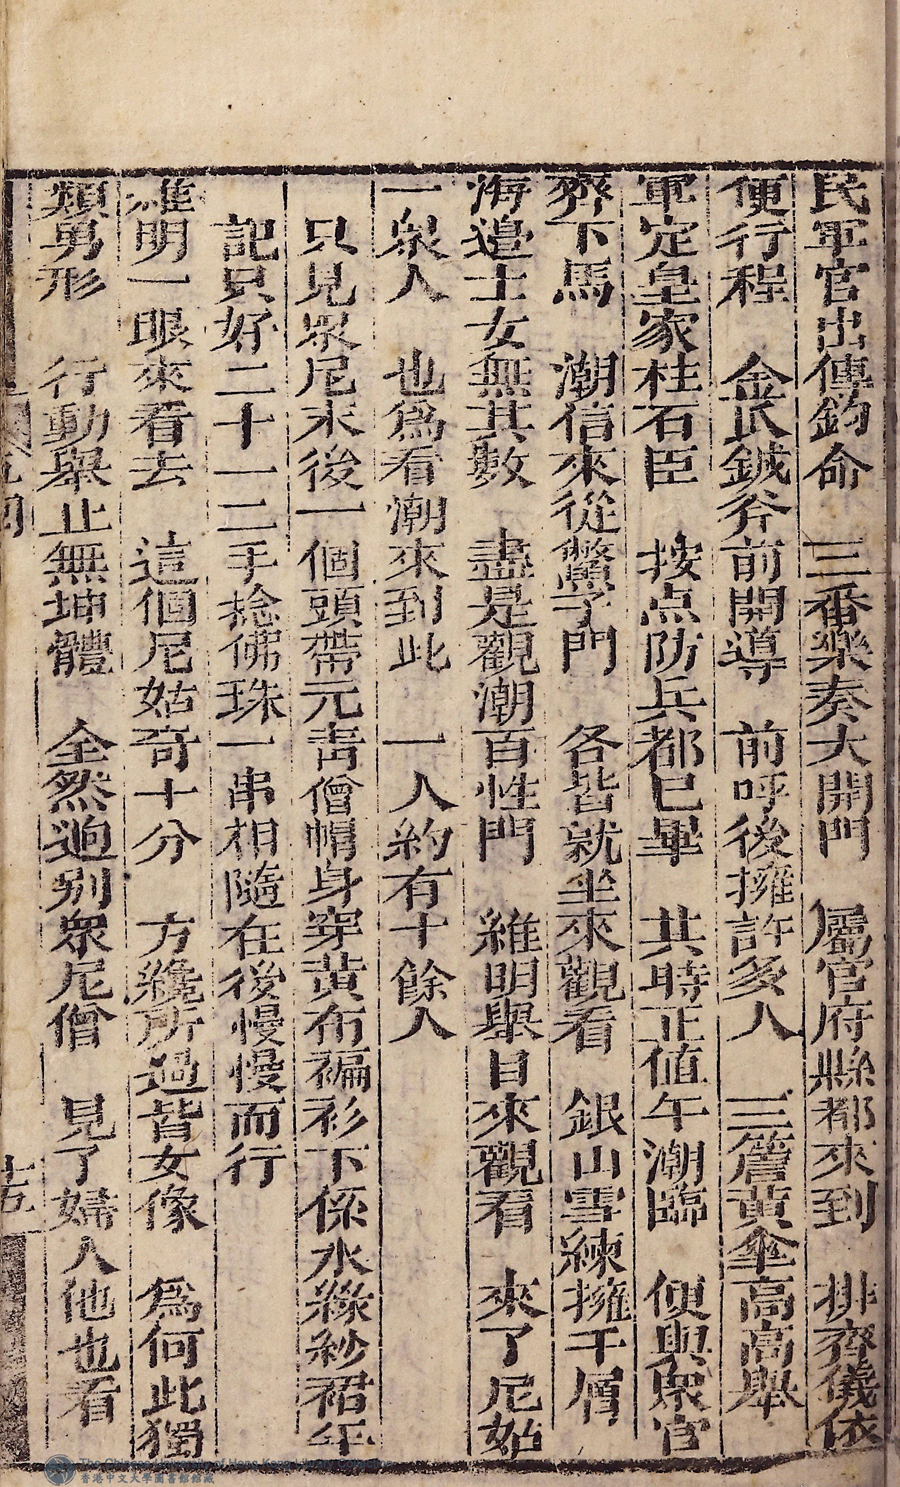 民軍官出傳鈞命　三番樂奏大開門　屬官府縣都來到　排齊儀依
便行程　金瓜鉞斧前開導　前呼後擁許多人　三簷黃傘高高舉
軍定皇家柱石臣　按点防兵都巳畢　共時正值午潮臨　便與眾官
齊下馬　潮信來從鱉子門　各皆就坐來觀看　銀山雪練擁千層
海邊士女無其數　盡是觀潮百性門　維明舉目來觀看　來了尼姑
一衆人　也爲看潮來到此　一人約有十餘人
只見衆尼末後一個頭帶元青僧帽身穿黃布褊衫下係水綠紗裙年
記只好二十一二手捻佛珠一串相隨在後慢慢而行
維明一眼來看去　這個尼姑奇十分　方纔所過皆女像　爲何此獨
類男形　行動舉止無坤體　全然逈別眾尼僧　見了婦人他也看
十五
香港中文大學圖書館館藏